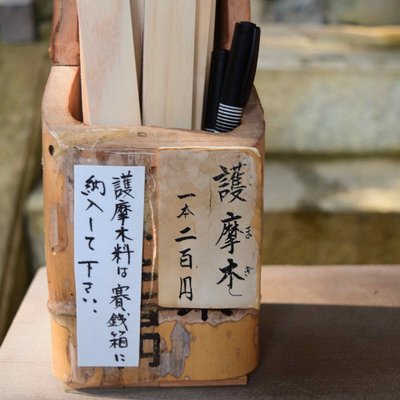 護摩木
まぎ
一本 二百円
護摩木料は賽銭箱に
納入して下さい.